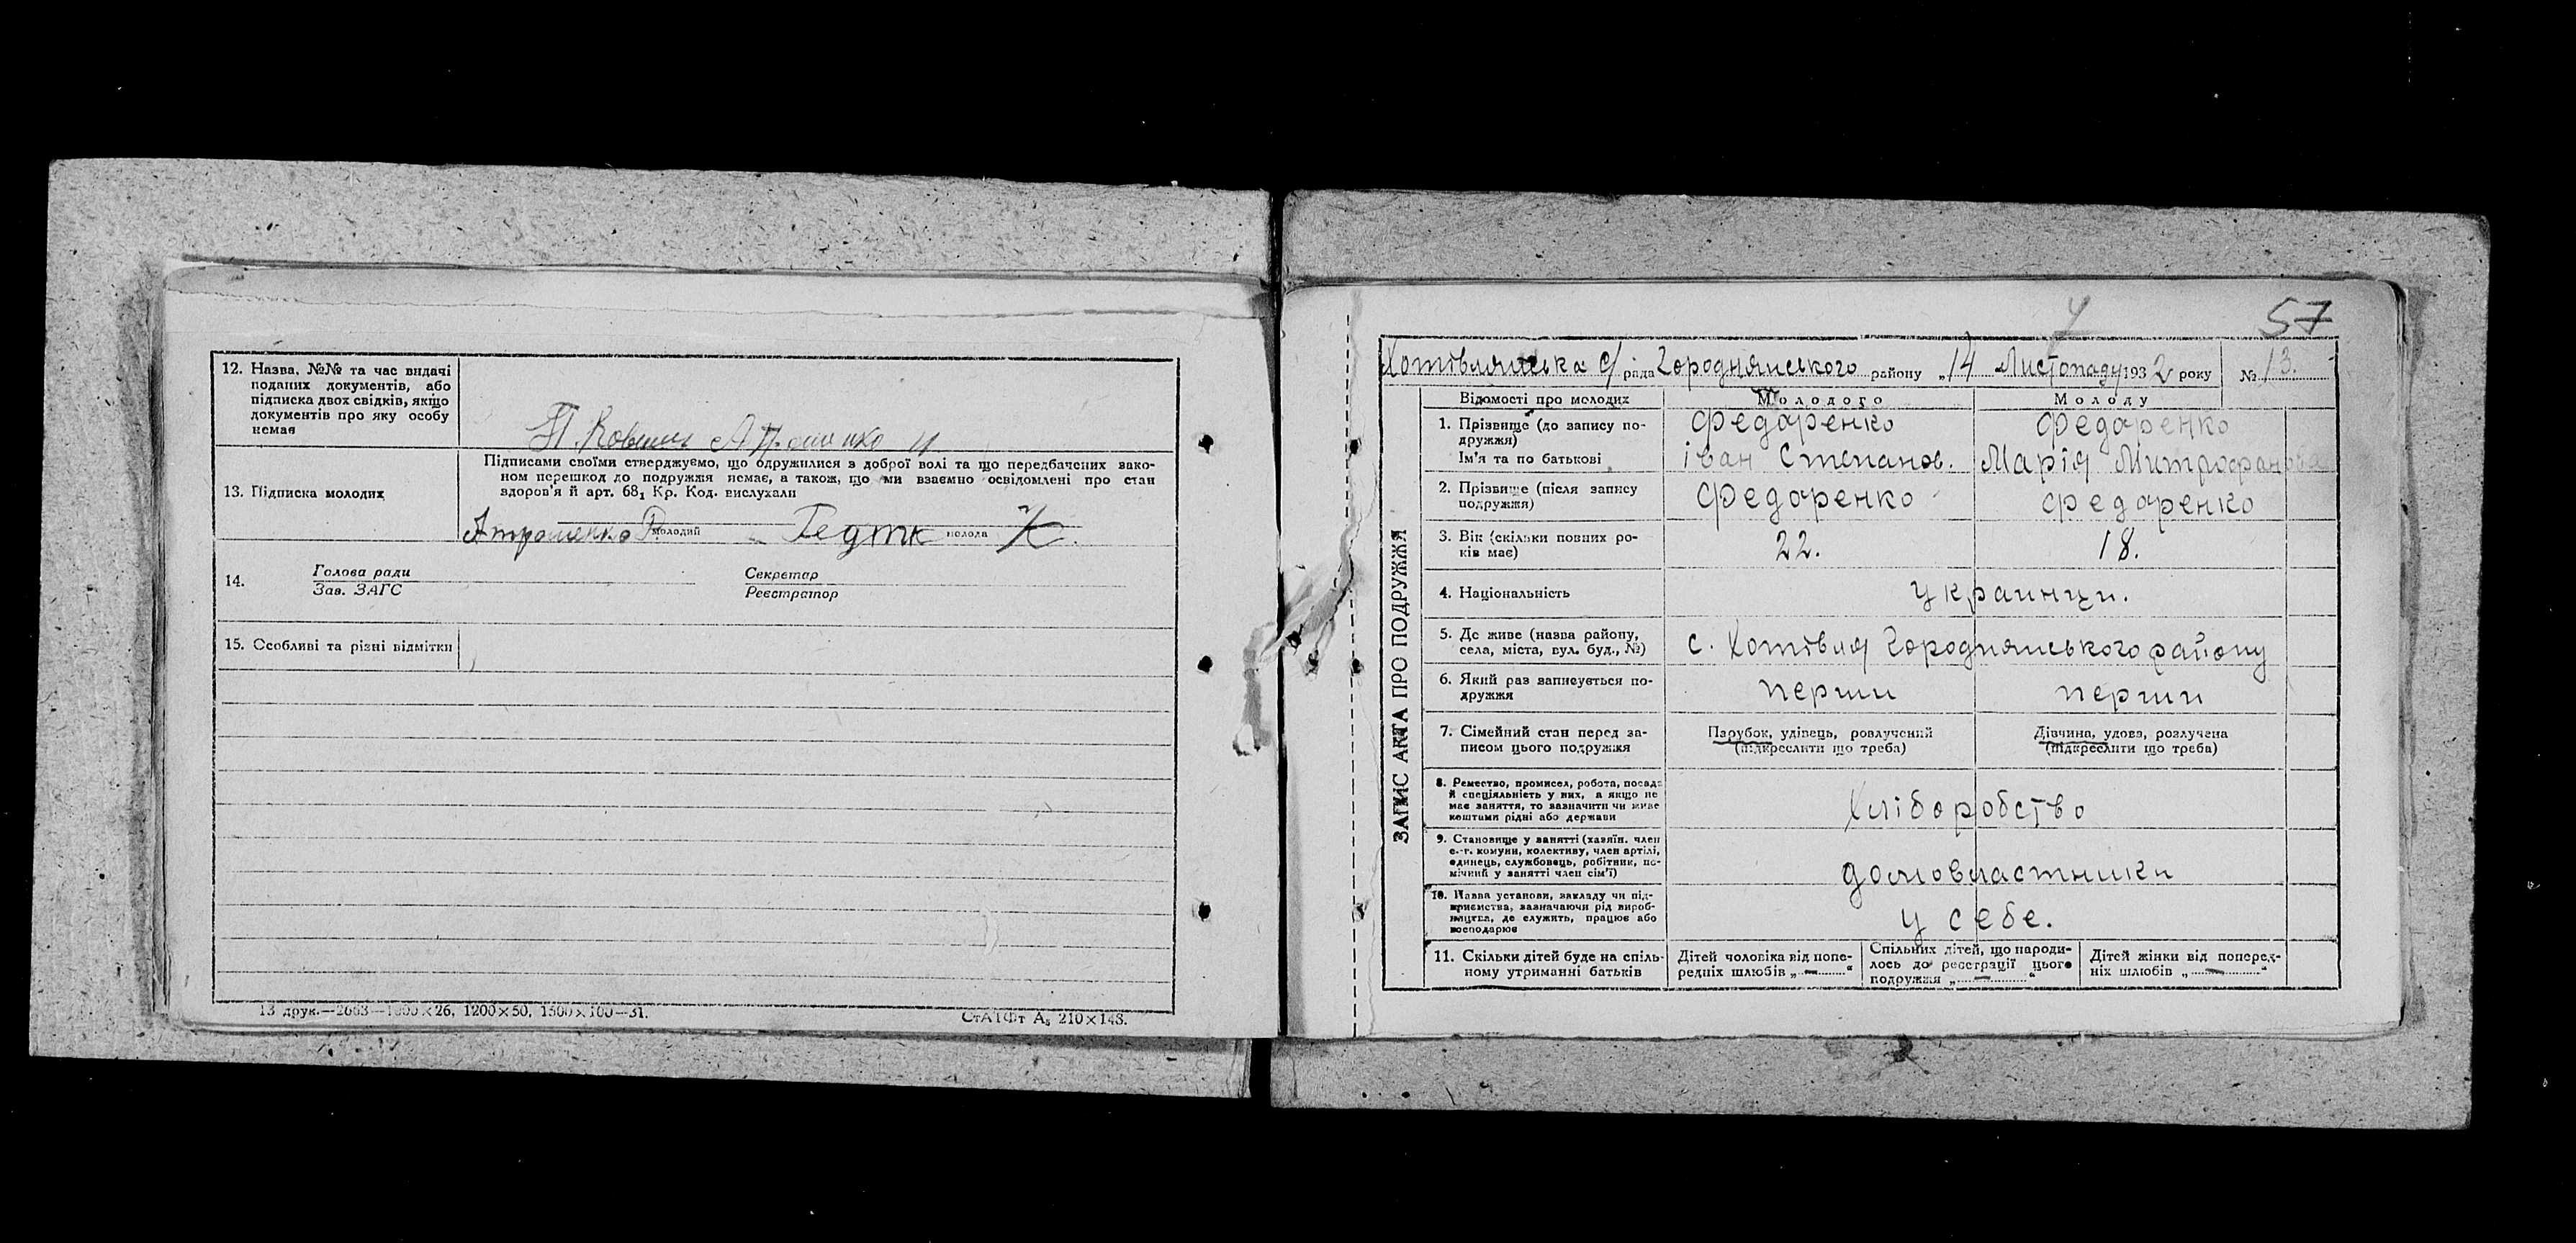 12. Назва, №№ та час видачі
поданих документів, або
підписка двох свідків, якщо
документів про яку особу
немає
13. Підписка молодих
Підписами своїми стверджуємо, що одружилися з доброї волі та що передбачених зако-
ном перешкод до подружжя немає, а також, що ми взаємно освідомлені про стан
здоров'я й арт. 68₁ Кр. Код. вислухали
молодий
молода
14. Голова ради
Зав. ЗАГС
Секретар
Реєстратор
15. Особливі та різні відмітки
13 друк.—2663—1000×26, 1200×50, 1500×100—31.
СтАТФт А₅ 210×148.
57
рада Городнянського району „14 Листопаду 1932 року № 13.
ЗАПИС АКТА ПРО ПОДРУЖЖЯ
Відомості про молодих
Молодого
Молоду
1. Прізвище (до запису по-
дружжя)
Ім'я та по батькові
Федоренко
Федоренко
іван Степанов.
Марія Митрофанова
2. Прізвище (після запису
подружжя)
Федоренко
Федоренко
3. Вік (скільки повних ро-
ків має)
22.
18.
4. Національність
украинци.
5. Де живе (назва району,
села, міста, вул. буд., №)
с. Хотівля Городнянського району
6. Який раз записується по-
дружжя
перши
перши
7. Сімейний стан перед за-
писом цього подружжя
Парубок, удівець, розлучений
(підкреслити що треба)
Дівчина, удова, розлучена
(підкреслити що треба)
8. Ремество, промисел, робота, посада
й спеціяльність у них, а якщо не
має заняття, то зазначити чи живе
коштами рідні або держави
Хліборобство
9. Становище у занятті (хазяїн. член
с.-г. комуни, колективу, член артілі,
одинець, службовець, робітник, по-
мічний у занятті член сім'ї)
домовластники
10. Назва установи, закладу чи під-
приємства, зазначаючи рід вироб-
ництва, де служить, працює або
господарює
у себе.
11. Скільки дітей буде на спіль-
ному утриманні батьків
Дітей чоловіка від попе-
редніх шлюбів „—“
Спільних дітей, що народи-
лось до реєстрації цього
подружжя „—“
Дітей жінки від поперед-
ніх шлюбів „—“